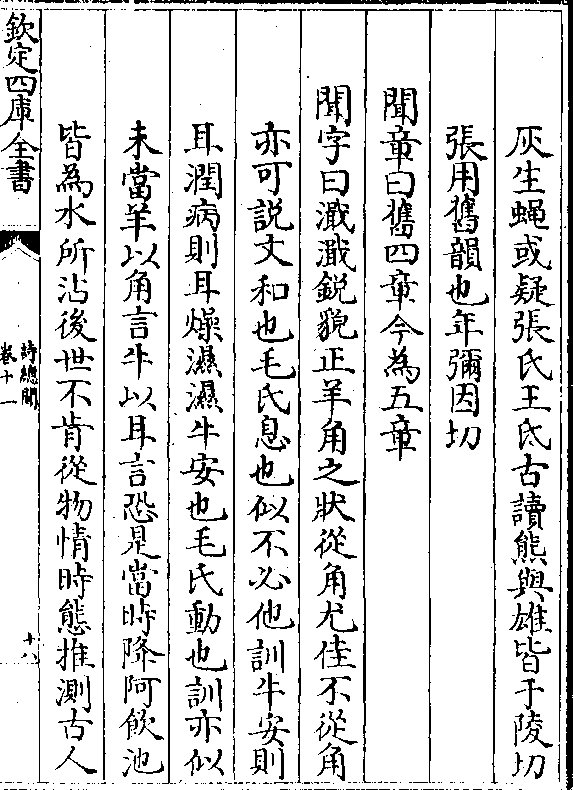 灰生蠅或疑張氏王氏古讀熊與雄皆于陵切
張用舊韻也年彌因切
聞章曰舊四章今為五章
聞字曰濈濈鋭貌正羊角之狀從角尤佳不從角
亦可説文和也毛氏息也似不必他訓牛安則
耳潤病則耳燥濕濕牛安也毛氏動也訓亦似
未當羊以角言牛以耳言恐是當時降阿飲池
皆為水所沾後世不肯從物情時態推測古人
欽定四庫全書
詩總聞
卷十一
十八